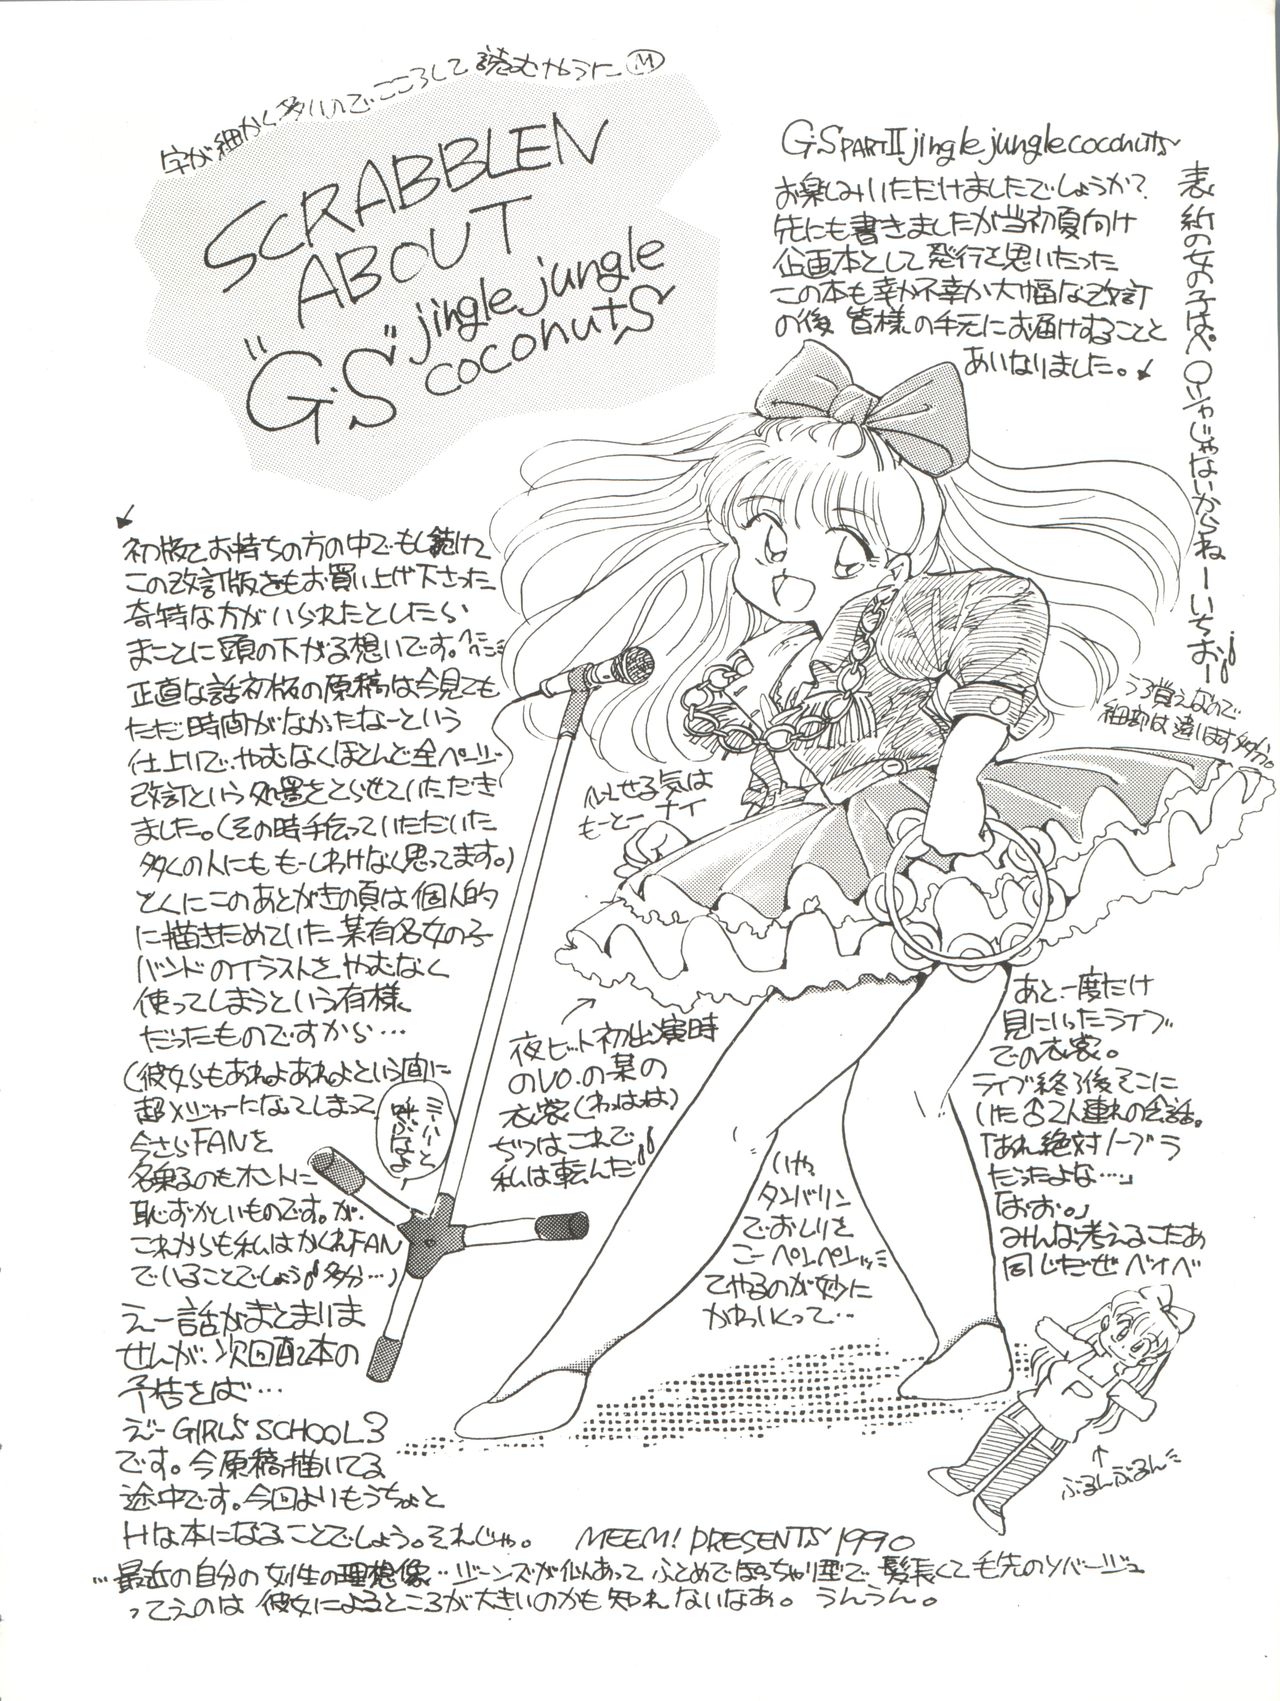 字が細かく多いのでこころして読むやうに Ⓜ
SCRABBLEN
ABOUT
"G.S" jingle jungle
coconuts
G.S PARTⅡ jingle jungle coconuts
お楽しみいただけましたでしょうか?
先にも書きましたが当初夏向け
企画本として発行を思いたった
この本も幸か不幸か大幅な改訂
の後 皆様の手元にお届けすることと
あいなりました。↙
表紙の女の子はペ○ジャじゃないからねーいちおー
初版をお持ちの方の中でもし続けて
この改訂版をもお買い上げ下さった
奇特な方がいられたとしたら
まことに頭の下がる想いです。
正直な話初版の原稿は今見ても
ただ時間がなかったなーという
仕上りで、やむなくほとんど全ページ
改訂という処置をとらせていただき
ました。(その時手伝っていただいた
多くの人にも もーしわけなく思ってます。)
とくにこのあとがきの頁は個人的
に描きためていた某有名女の子
バンドのイラストを、やむなく
使ってしまうという有様
だったものですから…
(彼女らもあれよあれよという間に
超メジャーになってしまって
今さらFANを
名乗るのもホントに
恥ずかしいものです。が、
これからも私はかくれFAN
でいることでしょう 多分…)
ミーハーと
呼ぶなよ
えー話がまとまりま
せんが、次回配本の
予告をば…
えーGIRL'S SCHOOL3
です。今原稿描いてる
途中です。今回よりもうちょと
Hな本になることでしょう。それじゃ。
MEEM! PRESENTS 1990
似せる気は
もーとーナイ
うろ覚えなので
細部は違います多分。
夜ヒット初出演時
のVO.の某の
衣裳(わはは)
ぢつはこれで
私は転んだ
いや
タンバリン
でおしりを
こーペンペンッ
てやるのが妙に
かわいくって…
あと、一度だけ
見にいったライブ
での衣裳。
ライブ終了後そこに
いた♂2人連れの会話。
「あれ絶対ノーブラ
だったよな…」
「おお。」
みんな考えるこたあ
同じだぜ ベイベ
↑
ぶるんぶるん
…最近の自分の女性の理想像…ジーンズが似あって ふとめでぽっちゃり型で 髪長くて毛先のソバージュ
ってえのは 彼女によるところが大きいのかも 知れないなあ。 うんうん。